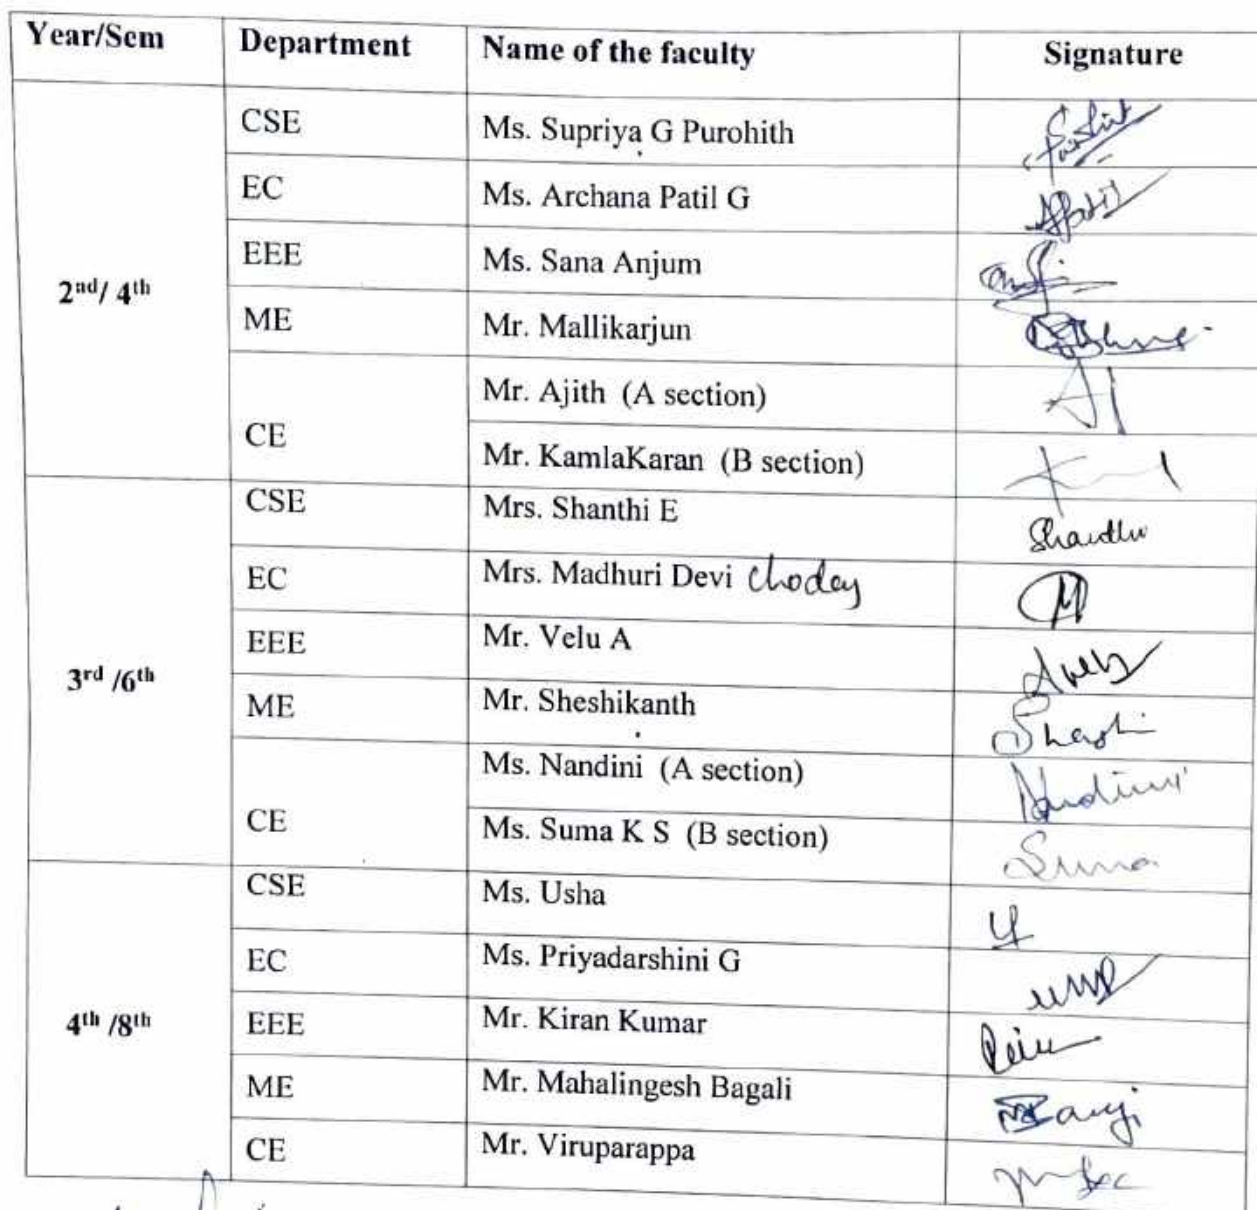 Year/Sem Department Name of the faculty Signature
CSE Ms. Supriya G Purohith
EC Ms. Archana Patil G
EEE Ms. Sana Anjum
2nd/ 4th
ME Mr. Mallikarjun
Mr. Ajith (A section)
CE
Mr. KamlaKaran (B section)
CSE Mrs. Shanthi E
EC Mrs. Madhuri Devi Choday
EEE Mr. Velu A
3rd /6th
ME Mr. Sheshikanth Shashi
Ms. Nandini (A section) Nandini
CE Ms. Suma K S (B section) Suma
CSE Ms. Usha
EC Ms. Priyadarshini G
4th /8th EEE Mr. Kiran Kumar
ME Mr. Mahalingesh Bagali
CE Mr. Viruparappa